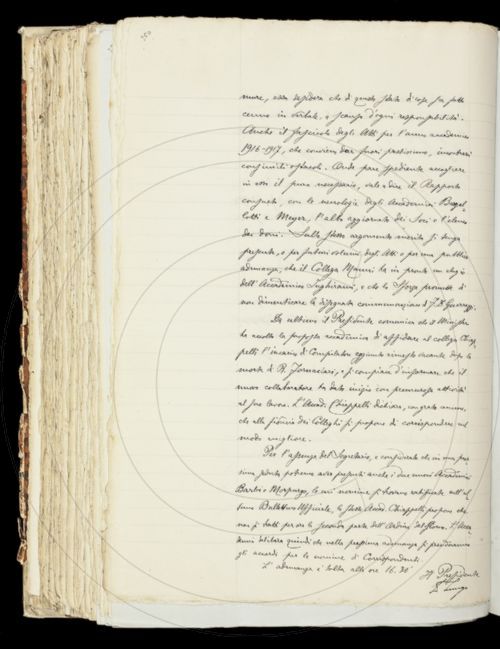 nuare, essa desidera che di questo stato di cose sia fatto
cenno in verbale, a scanso d'ogni responsabilità.
Anche il fascicolo degli Atti per l'anno accademico
1916-1917, che conviene dar fuori prestissimo, incontrerà
consimili ostacoli. Onde pare spediente accogliere
in esso il puro necessario, vale a dire il Rapporto
consueto, con le necrologie degli Accademici
e Meyer, l'albo aggiornato dei Soci e l'elenco
dei doni. Sullo stesso argomento merita si tenga
presente, o per futuri volumi degli Atti o per una pubblica
adunanza, che il Collega Mazzoni ha in pronto un elogio
dell'Accademico Inghirami, e che lo Sforza promette di
non dimenticare la disegnata commemorazione di F. D. Guerrazzi.
Da ultimo il Presidente comunica che il Ministero
ha accolto la proposta accademica di affidare al collega Chiap-
pelli l'incarico di Compilatore aggiunto rimasto vacante dopo la
morte di R. Fornaciari, e si compiace d'informare che il
nuovo collaboratore ha dato inizio con premurosa attività
al suo lavoro. L'Accad. Chiappelli dichiara, con grato animo,
che alla fiducia dei Colleghi si propone di corrispondere nel
modo migliore.
Per l'assenza del Segretario, e considerato che in una pros-
sima seduta potranno aver presenti anche i due nuovi Accademici
Barbi e Morpurgo, le cui nomine si trovano ratificate nell'ul-
timo Bollettino Ufficiale, lo stesso Accad. Chiappelli propone che
non si tratti per ora la seconda parte dell'Ordine del giorno. L'Acca-
demia delibera quindi che nella prossima adunanza si prenderanno
gli accordi per le nomine di Corrispondenti.
L'adunanza è tolta alle ore 16.30
Il Presidente